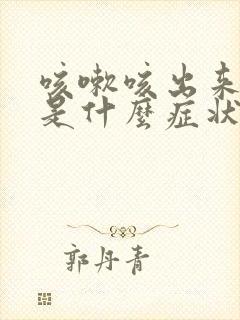 咳嗽咳出来
是什麼症状
郭丹青